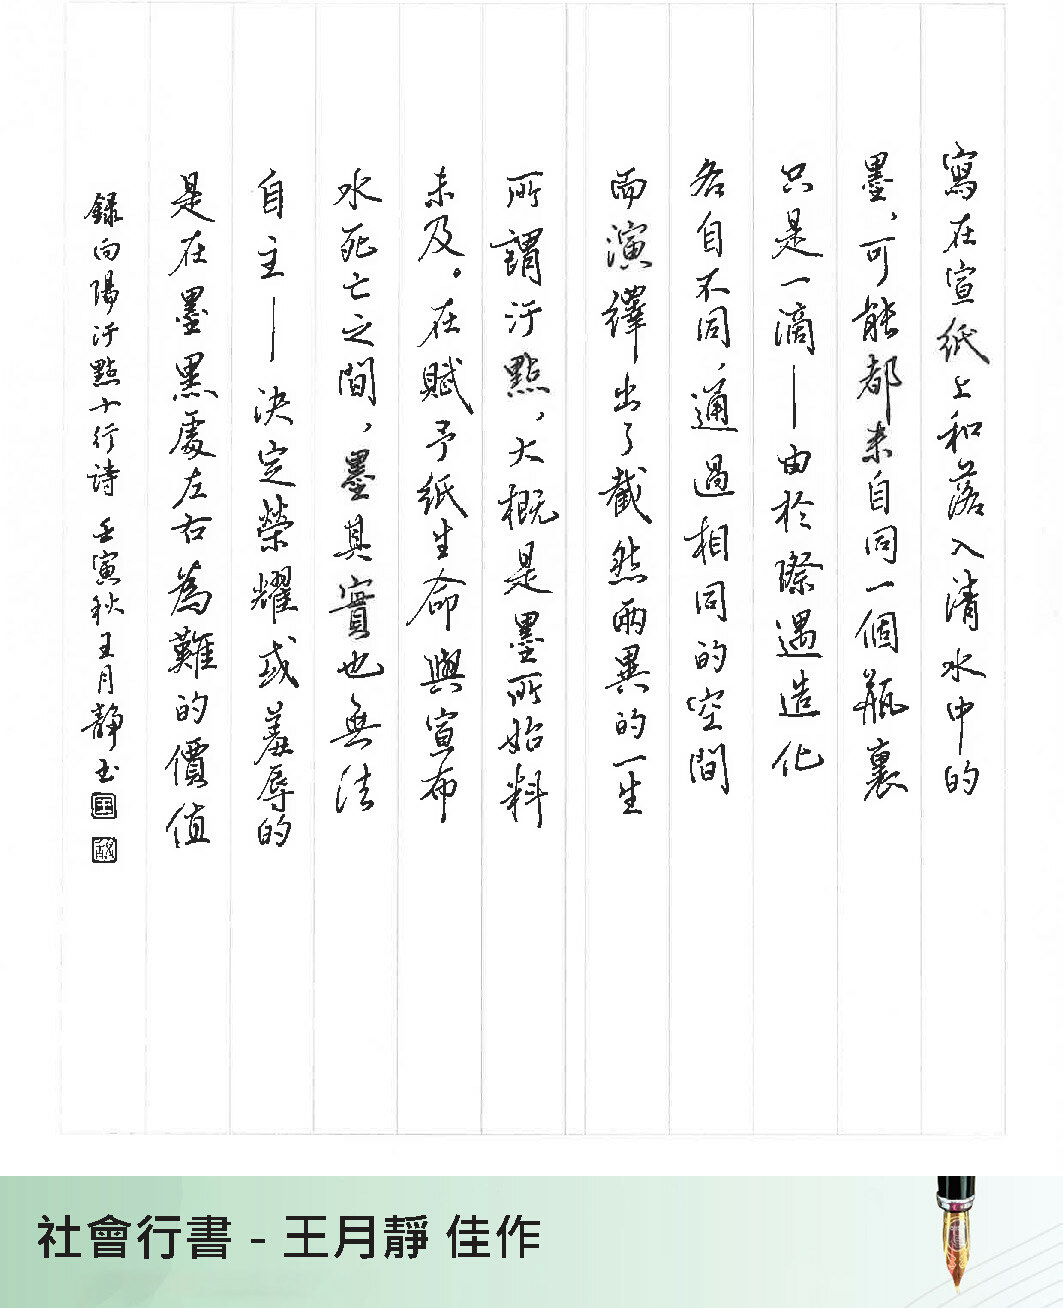 寫在宣紙上和落入清水中的
墨,可能都來自同一個瓶裏
只是一滴—由於際遇造化
各自不同,通過相同的空間
而演繹出了截然兩異的一生
所謂汙點,大概是墨所始料
未及。在賦予紙生命與宣布
水死亡之間,墨其實也無法
自主—決定榮耀或羞辱的
是在墨黑處左右為難的價值
錄向陽汙點十行詩 壬寅秋王月靜書
社會行書 - 王月靜 佳作